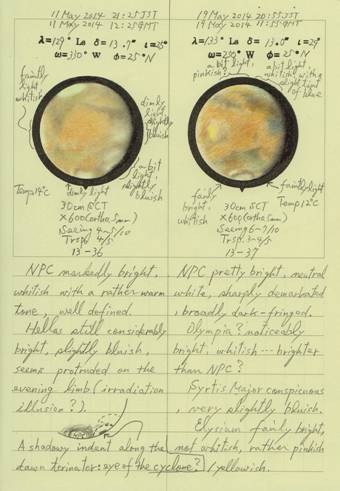 11 May 2014 21:25 JST
11 May 2014 12:25 GMT
λ=129° Ls δ=13.7" ι=25°
ω=330° W φ=25°N
faintly
light
whitish
dimly
light,
slightly
bluish
a bit
light,
slightly
bluish
Temp 14°C
dimly light
30cm SCT
×600 (ortho 5mm)
Seeing 4~5/10
Trsp. 4/5
13-36
NPC markedly bright,
whitish with a rather warm
tone, well defined.
Hellas still considerably
bright, slightly bluish,
seems protruded on the
evening limb (irradiation
illusion?).
A shadowy indent along the
dawn terminator: eye of the cyclone?
19 May 2014 20:55 JST
19 May 2014 11:55 GMT
λ=133° Ls δ=13.0" ι=29°
ω=250° W φ=25°N
a bit light,
pinkish
a bit light,
whitish with a
slight tint
of blue
fairly
bright,
whitish
faintly light
Temp 12°C
30cm SCT
×600 (ortho 5mm)
Seeing 6~7/10
Trsp. 3~4/5
13-37
NPC pretty bright, neutral
white, sharply demarcated
, broadly dark-fringed.
Olympia? noticeably
bright, whitish --- brighter
than NPC?
Syrtis Major conspicuous
, very slightly bluish.
Elysium fairly bright,
not whitish, rather pinkish
/yellowish.